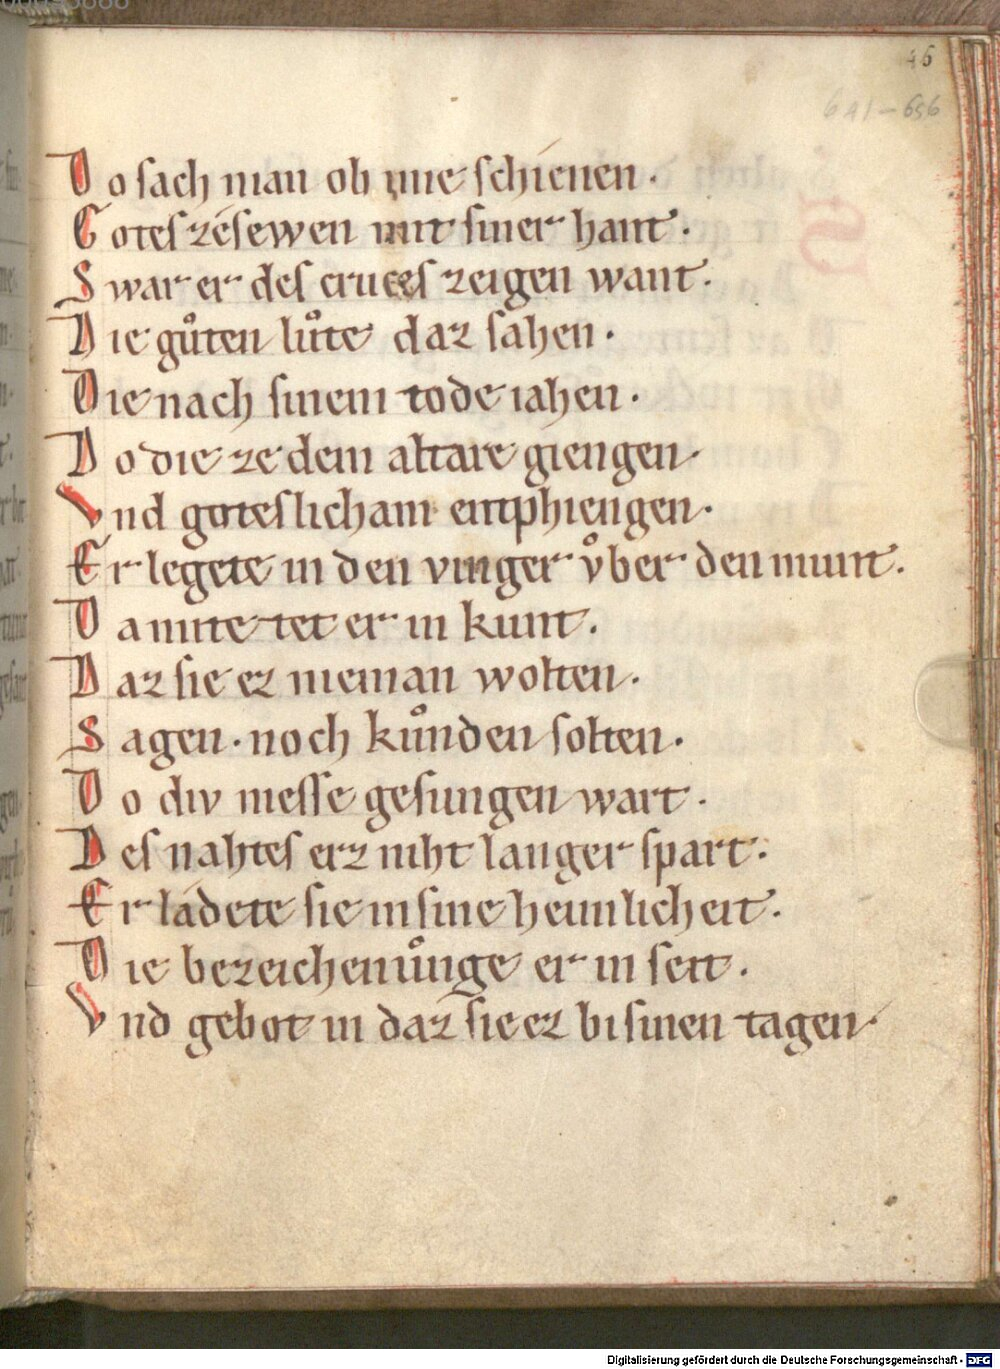 45
641-656
Do sach man ob ime schienen.
Gotes zesewen mit siner hant.
Swar er des cruces zeigen want.
Die gůten lůte daz sahen.
Die nach sinem tode iahen.
Do die ze dem altare giengen.
Vnd gotes licham emphiengen.
Er legete in den vinger v̊ber den munt.
Da mite tet er in kunt.
Daz sie ez nieman wolten.
Sagen. noch ku̇nden solten.
Do div messe gesungen wart.
Des nahtes erz niht langer spart.
Er ladete sie in sine heimlicheit.
Die bezeichenůnge er in seit.
Vnd gebot in daz sie ez bi sinen tagen.
Digitalisierung gefördert durch die Deutsche Forschungsgemeinschaft - DFG